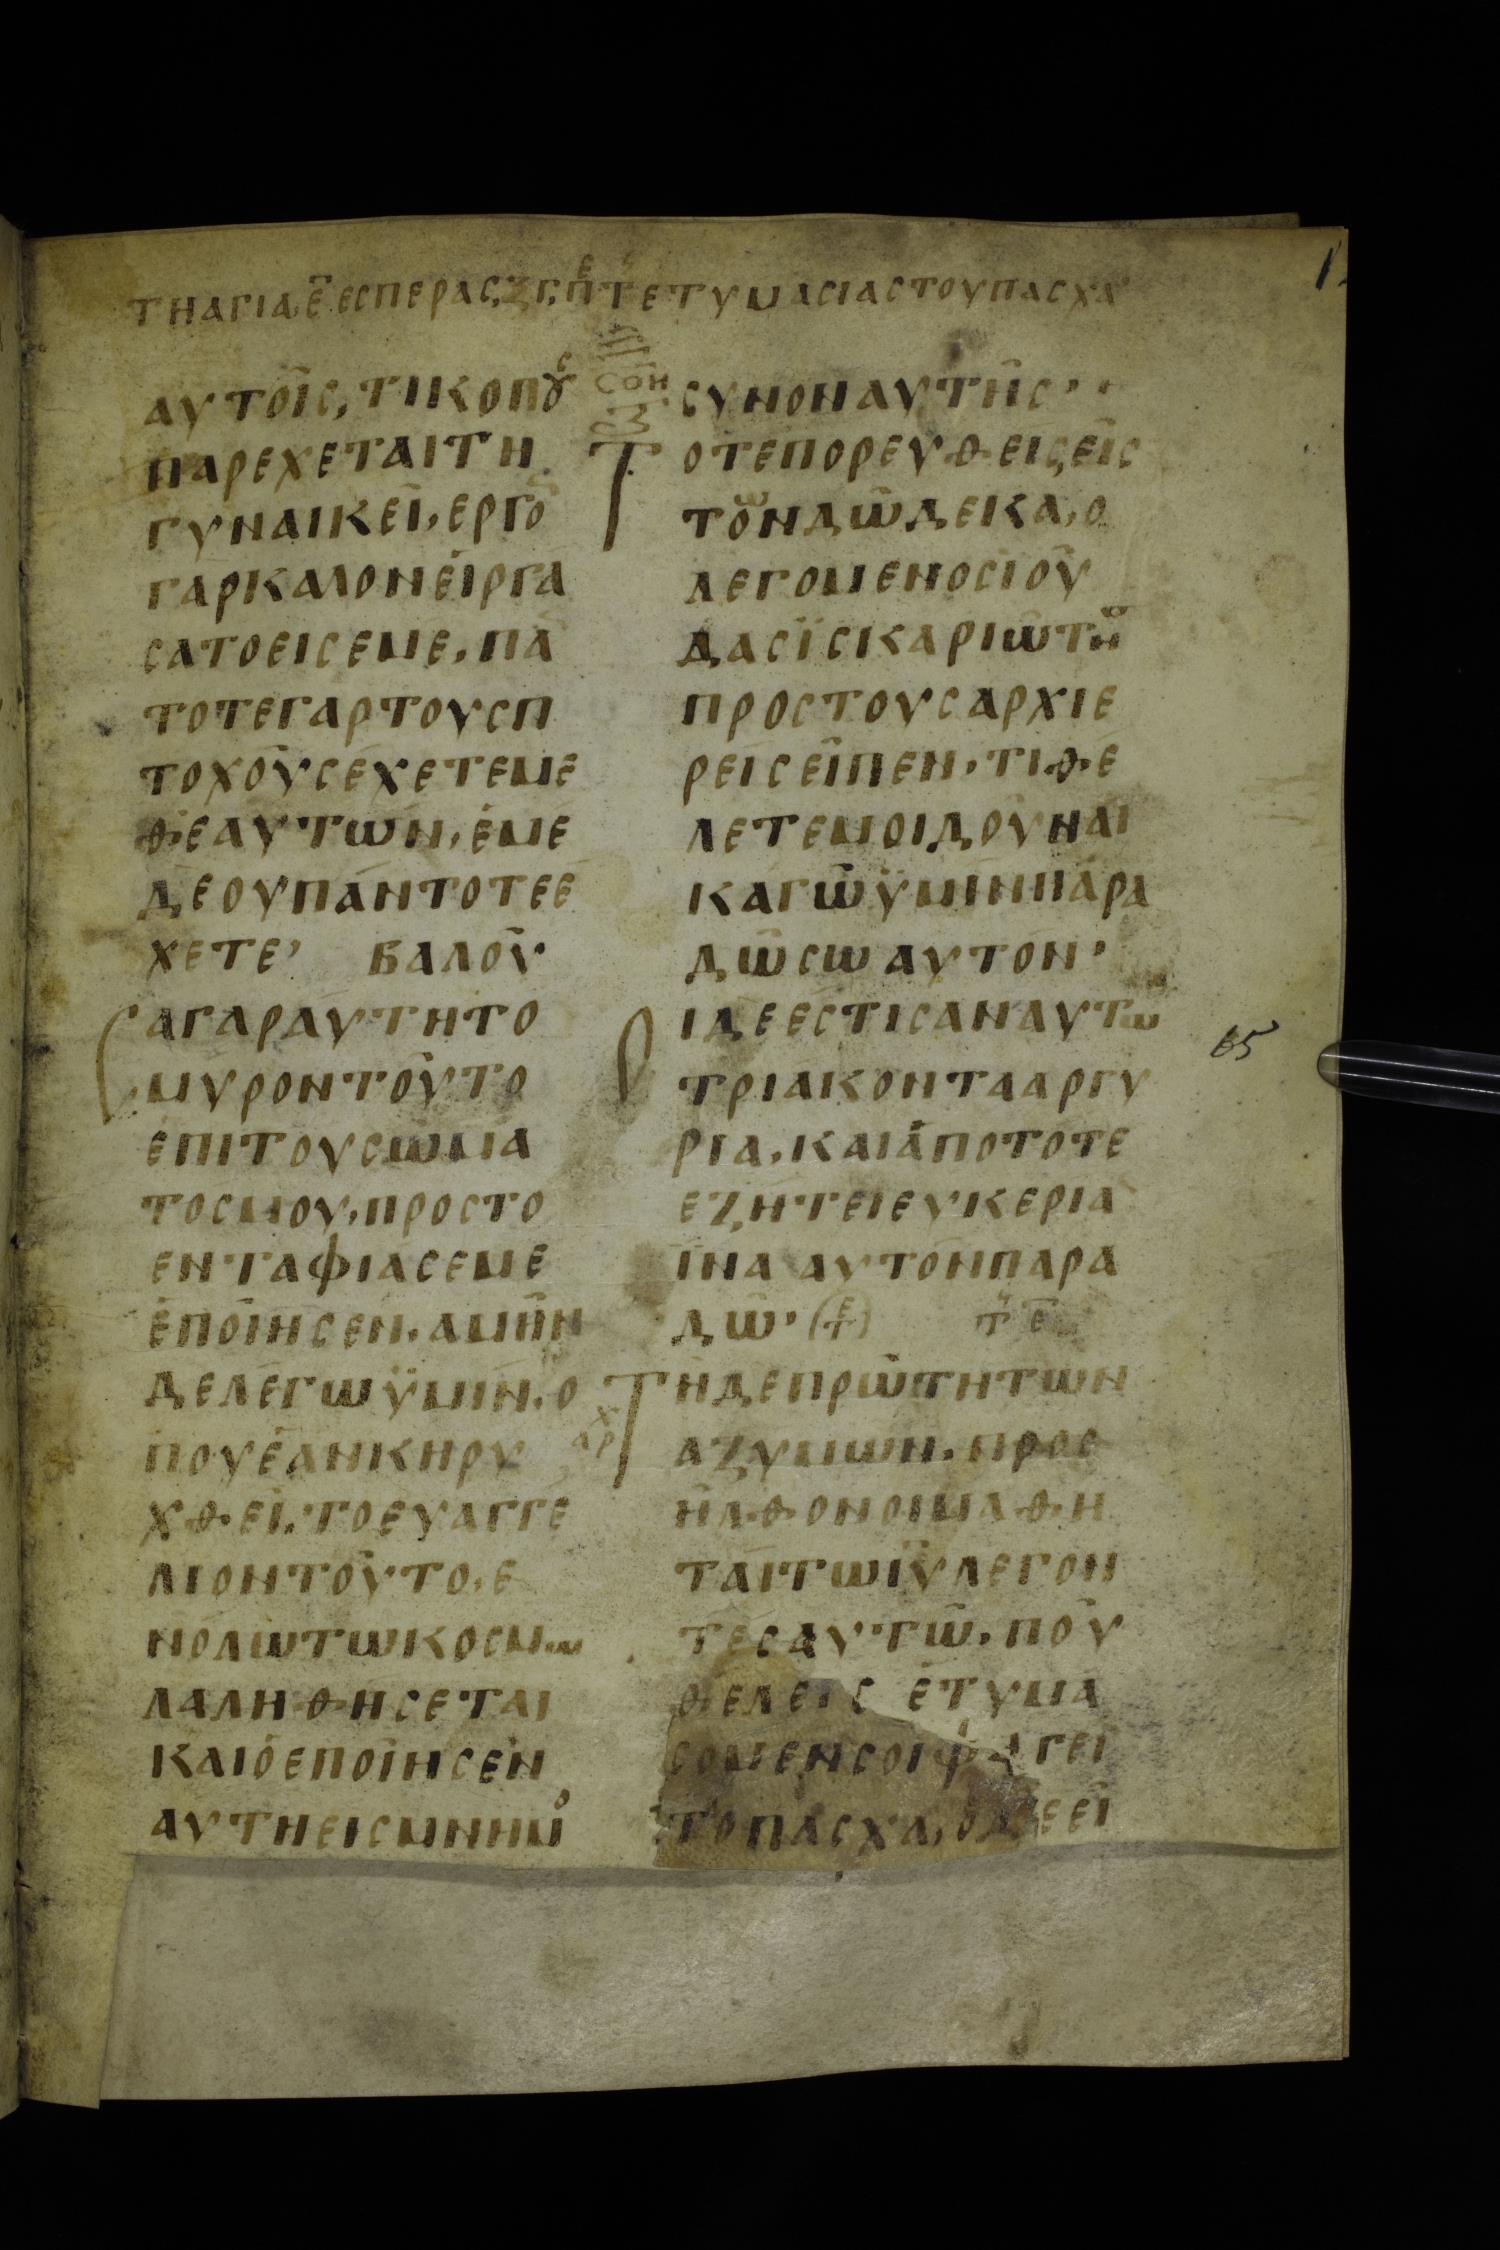 ΤΗ ΑΓΙΑ Ε ΕΣΠΕΡΑΣ ΤΕΤΥΜΑΣΙΑΣ ΤΟΥ ΠΑΣΧΑ
ΑΥΤΟΙΣ, ΤΙ ΚΟΠΟΥΣ
ΠΑΡΕΧΕΤΑΙ ΤΗ
ΓΥΝΑΙΚΕΙ, ΕΡΓΟ
ΓΑΡ ΚΑΛΟΝ ΕΙΡΓΑ
ΣΑΤΟ ΕΙΣ ΕΜΕ, ΠΑ
ΤΟΤΕ ΓΑΡ ΤΟΥΣ Π
ΤΟΧΟΥΣ ΕΧΕΤΕ ΜΕ
Θ ΕΑΥΤΩΝ, ΕΜΕ
ΔΕ ΟΥ ΠΑΝΤΟΤΕ Ε
ΧΕΤΕ, ΒΑΛΟΥ
ΣΑ ΓΑΡ ΑΥΤΗ ΤΟ
ΜΥΡΟΝ ΤΟΥΤΟ
ΕΠΙ ΤΟΥ ΣΩΜΑ
ΤΟΣ ΜΟΥ, ΠΡΟΣ ΤΟ
ΕΝΤΑΦΙΑΣΕ ΜΕ
ΕΠΟΙΗΣΕΝ, ΑΜΗΝ
ΔΕ ΛΕΓΩ ΫΜΙΝ, Ο
ΠΟΥ ΕΑΝ ΚΗΡΥ
ΧΘΕΙ, ΤΟ ΕΥΑΓΓΕ
ΛΙΟΝ ΤΟΥΤΟ, Ε
Ν ΟΛΩ ΤΩ ΚΟΣΜΩ
ΛΑΛΗΘΗΣΕΤΑΙ
ΚΑΙ Ο ΕΠΟΙΗΣΕΝ
ΑΥΤΗ ΕΙΣ ΜΝΗΜΟ
ΣΥΝΟΝ ΑΥΤΗΣ
ΤΟΤΕ ΠΟΡΕΥΘΕΙΣ ΕΙΣ
ΤΩΝ ΔΩΔΕΚΑ, Ο
ΛΕΓΟΜΕΝΟΣ ΙΟΥ
ΔΑΣ ΪΣΚΑΡΙΩΤΗΣ
ΠΡΟΣ ΤΟΥΣ ΑΡΧΙΕ
ΡΕΙΣ ΕΙΠΕΝ, ΤΙ ΘΕ
ΛΕΤΕ ΜΟΙ ΔΟΥΝΑΙ
ΚΑΓΩ ΫΜΙΝ ΠΑΡΑ
ΔΩΣΩ ΑΥΤΟΝ,
ΟΙ ΔΕ ΕΣΤΙΣΑΝ ΑΥΤΩ
65
ΤΡΙΑΚΟΝΤΑ ΑΡΓΥ
ΡΙΑ, ΚΑΙ ΑΠΟ ΤΟΤΕ
ΕΖΗΤΕΙ ΕΥΚΕΡΙΑ
ΪΝΑ ΑΥΤΟΝ ΠΑΡΑ
ΔΩ,
ΤΗ ΔΕ ΠΡΩΤΗ ΤΩΝ
ΑΖΥΜΩΝ, ΠΡΟΣ
ΗΛΘΟΝ ΟΙ ΜΑΘΗ
ΤΑΙ ΤΩ ΙΥ ΛΕΓΟΝ
ΤΕΣ ΑΥΤΩ, ΠΟΥ
ΘΕΛΕΙΣ ΕΤΥΜΑ
ΣΟΜΕΝ ΣΟΙ ΦΑΓΕΙ
ΤΟ ΠΑΣΧΑ, Ο ΔΕ ΕΙ